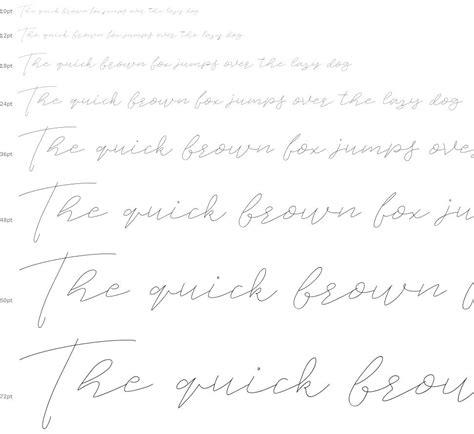 10pt The quick brown fox jumps over the lazy dog
12pt The quick brown fox jumps over the lazy dog
18pt The quick brown fox jumps over the lazy dog
24pt The quick brown fox jumps over the lazy dog
36pt The quick brown fox jumps ove
48pt The quick brown fox ju
60pt The quick brown
72pt The quick brow